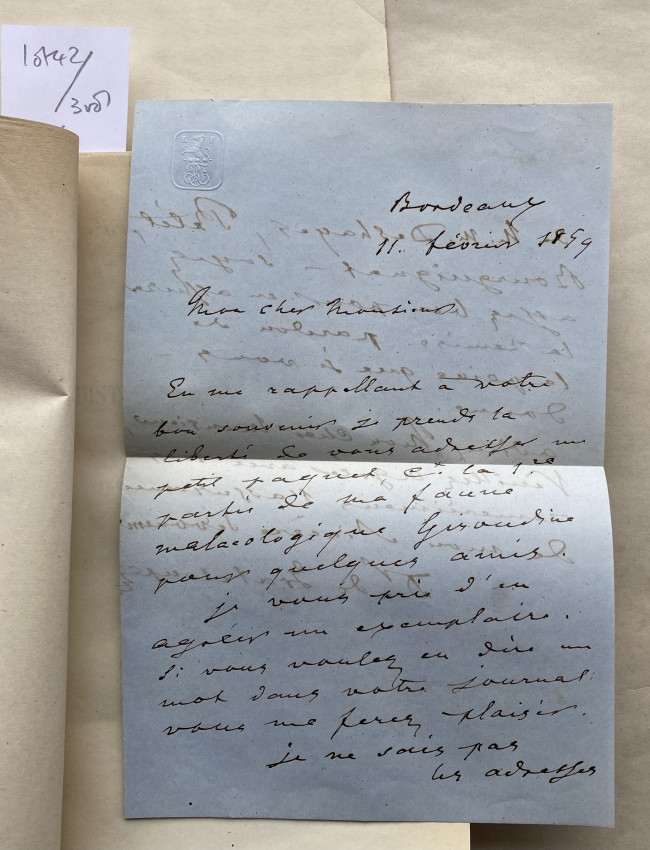 lot 42/
3 vol
Bordeaux
11. février 1859
Mon cher Monsieur
En me rappellant a votre
bon souvenir je prends la
liberté de vous adresser un
petit paquet Ct. la 1re
partie de ma faune
malacologique Girondine
pour quelques amis.
je vous prie d'en
agréer un exemplaire.
Si vous voulez en dire un
mot dans votre journal
vous me ferez plaisir.
je ne sais pas
les adresses